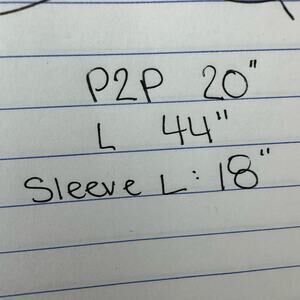 P2P 20"
L 44"
Sleeve L: 18"